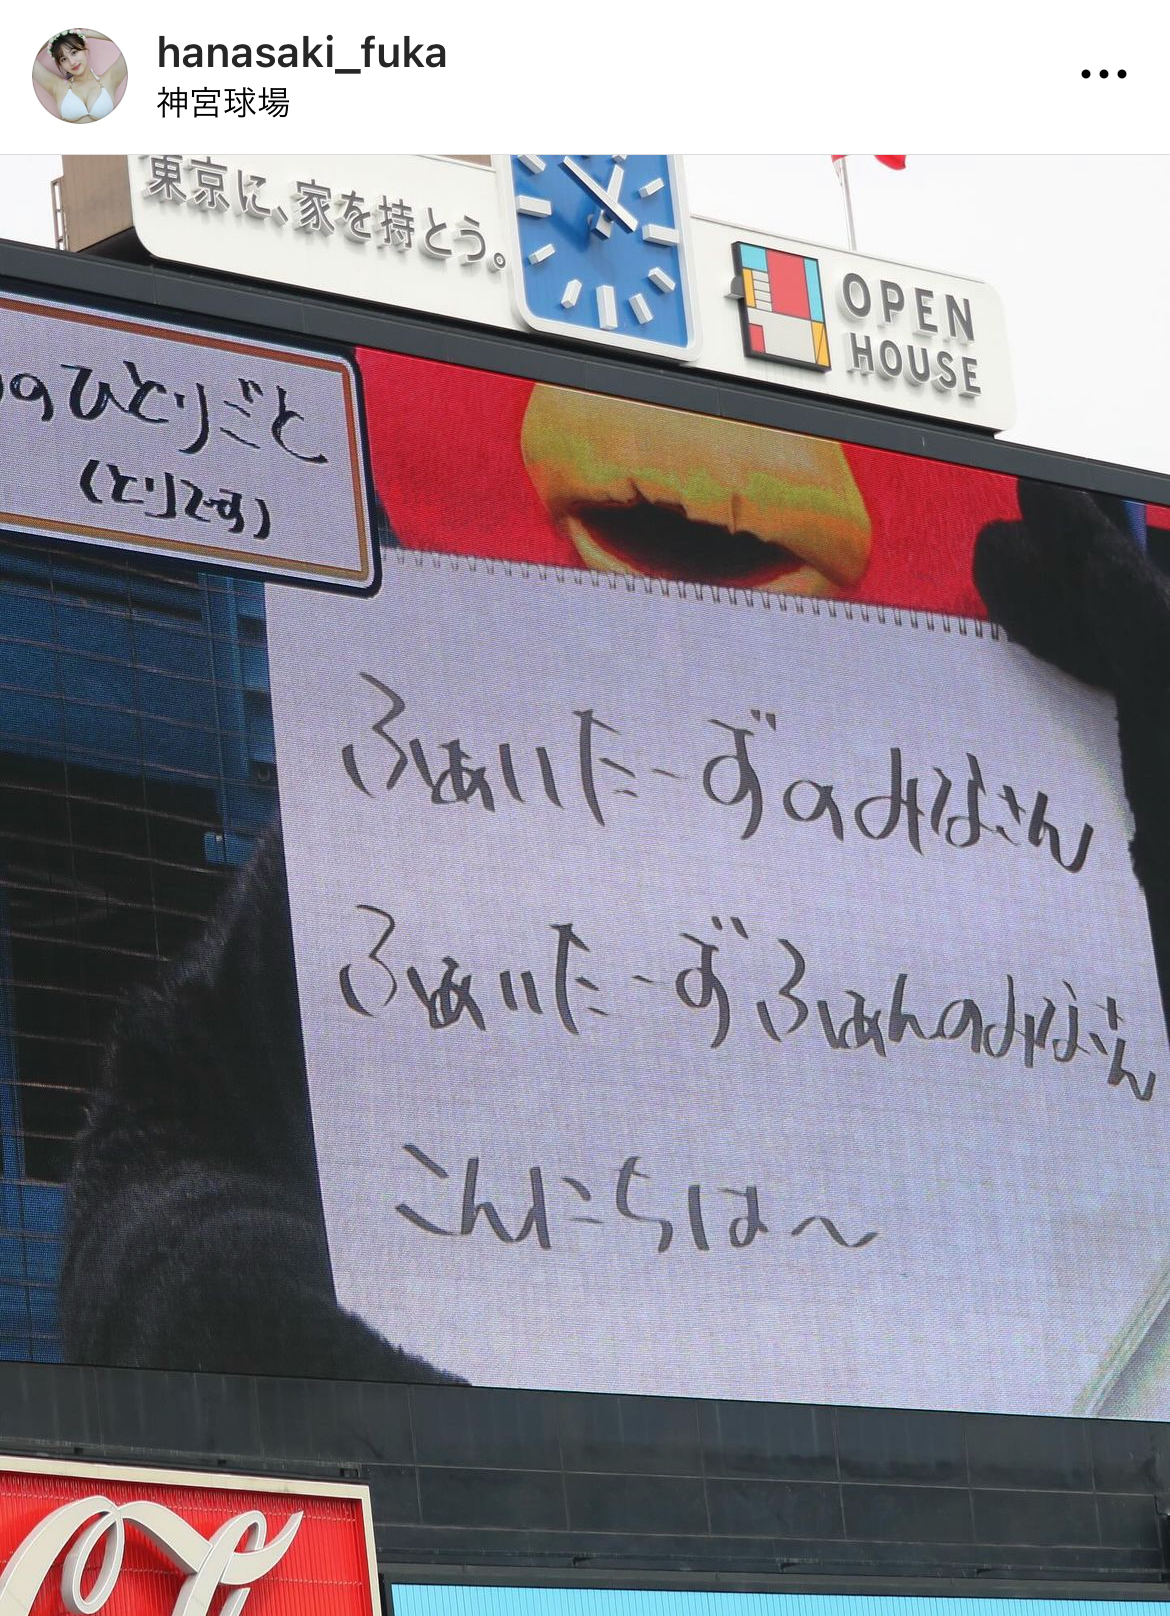 hanasaki_fuka
神宮球場
東京に、家を持とう。
OPEN
HOUSE
のひとりごと
(とりです)
ふぁいたーずのみなさん
ふぁいたーずふぁんのみなさん
こんにちは～